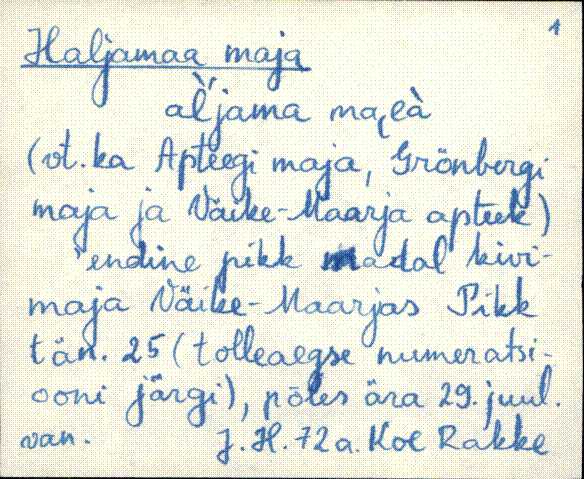 1
Haljamaa maja
al̀'jama maeà
(vt. ka Apteegi maja, Grönbergi
maja ja Väike-Maarja apteek)
endine pikk madal kivi-
maja Väike-Maarjas Pikk
tän. 25 (tolleaegse numeratsi-
ooni järgi), põles ära 29. juul.
van. J. H. 72 a. Koe Rakke